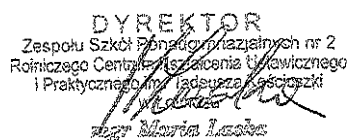 DYREKTOR
Zespołu Szkół Ponadgimnazjalnych nr 2
Rolniczego Centrum Kształcenia Ustawicznego
i Praktycznego im. Tadeusza Kościuszki
mgr Maria